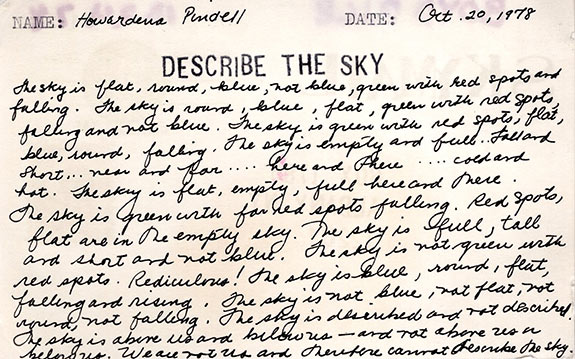 NAME: Howardena Pindell DATE: Oct. 20, 1978
DESCRIBE THE SKY
The sky is flat, round, blue, not blue, green with red spots and
falling. The sky is round, blue, flat, green with red spots,
falling and not blue. The sky is green with red spots, flat,
blue, round, falling. The sky is empty and full.. Tall and
short... near and far .... here and there .... cold and
hot. The sky is flat, empty, full here and there.
The sky is green with red spots falling. Red spots,
flat are in the empty sky. The sky is full, tall
and short and not blue. The sky is not green with
red spots. Rediculous! The sky is blue, round, flat,
falling and rising. The sky is not blue, not flat, not
round, not falling. The sky is described and not described.
The sky is above us and below us — and not above us or
below us. We are not us and therefore cannot describe the sky.